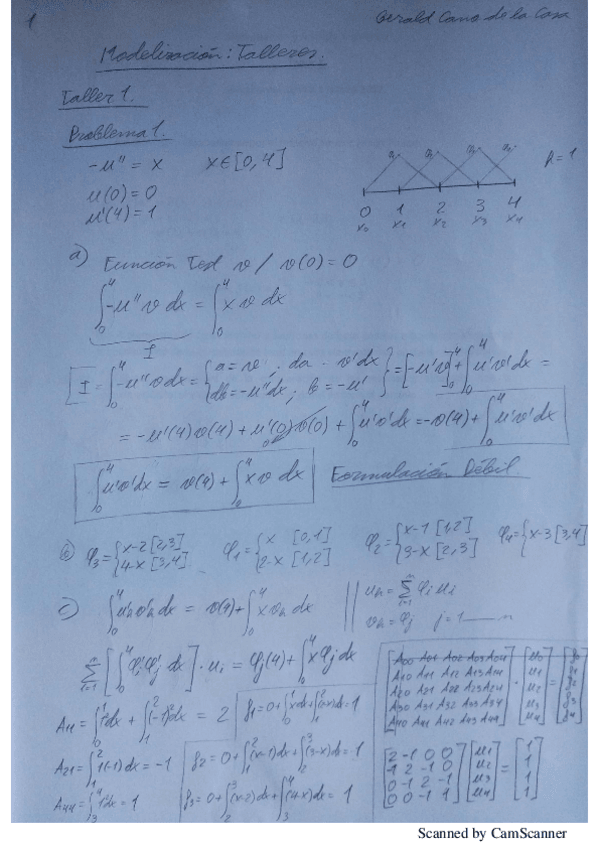 1
Gerald Cano de la Cosa
Modelización: Talleres.
Taller 1.
Problema 1.
-u'' = x   x∈[0,4]
u(0) = 0
u'(4) = 1
h = 1
0 1 2 3 4
x₀ x₁ x₂ x₃ x₄
a) Función Test v / v(0) = 0
∫₀⁴ -u''v dx = ∫₀⁴ x v dx
I
I = ∫₀⁴ -u''v dx = {a = v ; da = v'dx
db = -u''dx ; b = -u'} = [-u'v]₀⁴ + ∫₀⁴ u'v'dx =
= -u'(4)v(4) + u'(0)v(0) + ∫₀⁴ u'v'dx = -v(4) + ∫₀⁴ u'v'dx
∫₀⁴ u'v'dx = v(4) + ∫₀⁴ x v dx   Formulación Débil.
φ₃ = {x-2 [2,3]
4-x [3,4]   φ₁ = {x [0,1]
2-x [1,2]   φ₂ = {x-1 [1,2]
3-x [2,3]   φ₄ = {x-3 [3,4]
c) ∫₀⁴ u'ₕv'ₕ dx = v(4) + ∫₀⁴ x vₕ dx   || uₕ = Σᵢ₌₁ⁿ φᵢ uᵢ
vₕ = φⱼ   j = 1 — n
Σᵢ₌₁ⁿ [∫₀⁴ φ'ᵢ φ'ⱼ dx] · uᵢ = φⱼ(4) + ∫₀⁴ x φⱼ dx
A₀₀ A₀₁ A₀₂ A₀₃ A₀₄   u₀
A₁₀ A₁₁ A₁₂ A₁₃ A₁₄   u₁
A₂₀ A₂₁ A₂₂ A₂₃ A₂₄ · u₂ =
A₃₀ A₃₁ A₃₂ A₃₃ A₃₄   u₃
A₄₀ A₄₁ A₄₂ A₄₃ A₄₄   u₄
A₁₁ = ∫₀¹ 1dx + ∫₁² (-1)²dx = 2   f₁ = 0 + ∫₀¹ xdx + ∫₁² (2-x)dx = 1
A₂₁ = ∫₁² 1(-1)dx = -1   f₂ = 0 + ∫₁² (x-1)dx + ∫₂³ (3-x)dx = 1
A₄₄ = ∫₃⁴ 1²dx = 1   f₃ = 0 + ∫₂³ (x-2)dx + ∫₃⁴ (4-x)dx = 1
2 -1 0 0   u₁   1
-1 2 -1 0   u₂ = 1
0 -1 2 -1   u₃   1
0 0 -1 1   u₄   1
Scanned by CamScanner